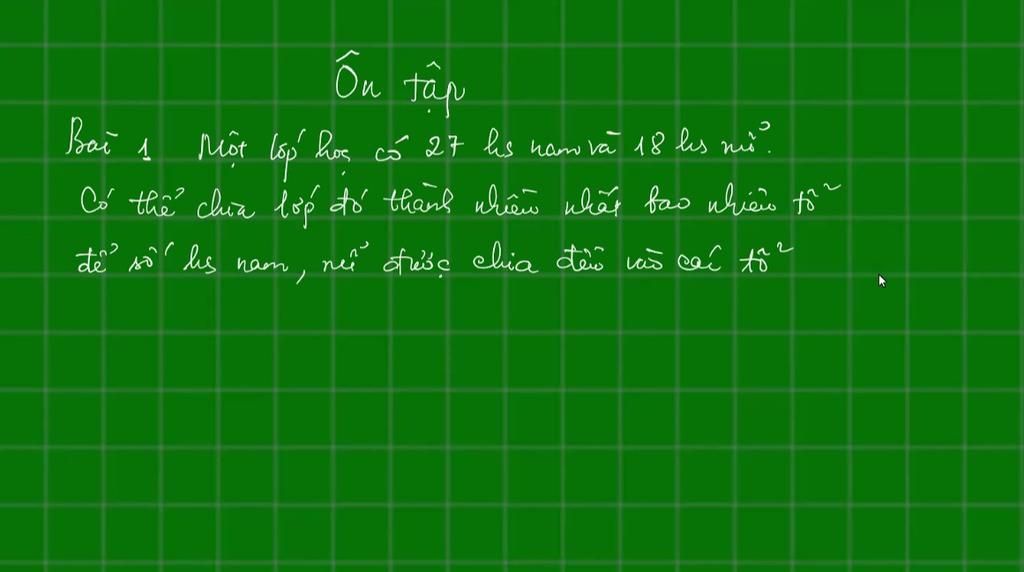 Ôn tập
Bài 1 Một lớp học có 27 hs nam và 18 hs nữ.
Có thể chia lớp đó thành nhiều nhất bao nhiêu tổ
để số hs nam, nữ được chia đều vào các tổ